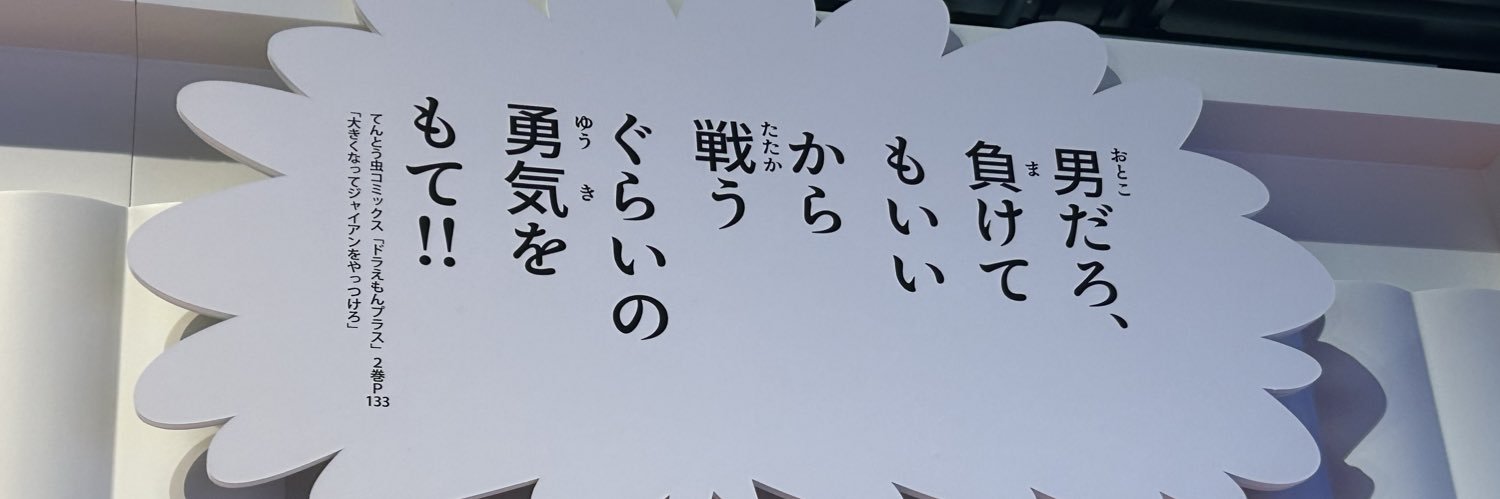 男だろ、
負けて
もいい
から
戦う
ぐらいの
勇気を
もて!!
てんとう虫コミックス「ドラえもんプラス」2巻P133
「大きくなってジャイアンをやっつけろ」
おとこ
ま
たたか
ゆうき